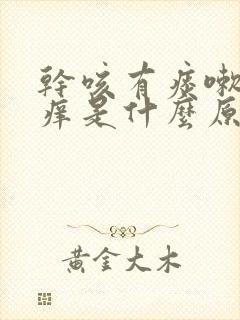 幹咳有痰嗽
痒是什麼原
黃金大木